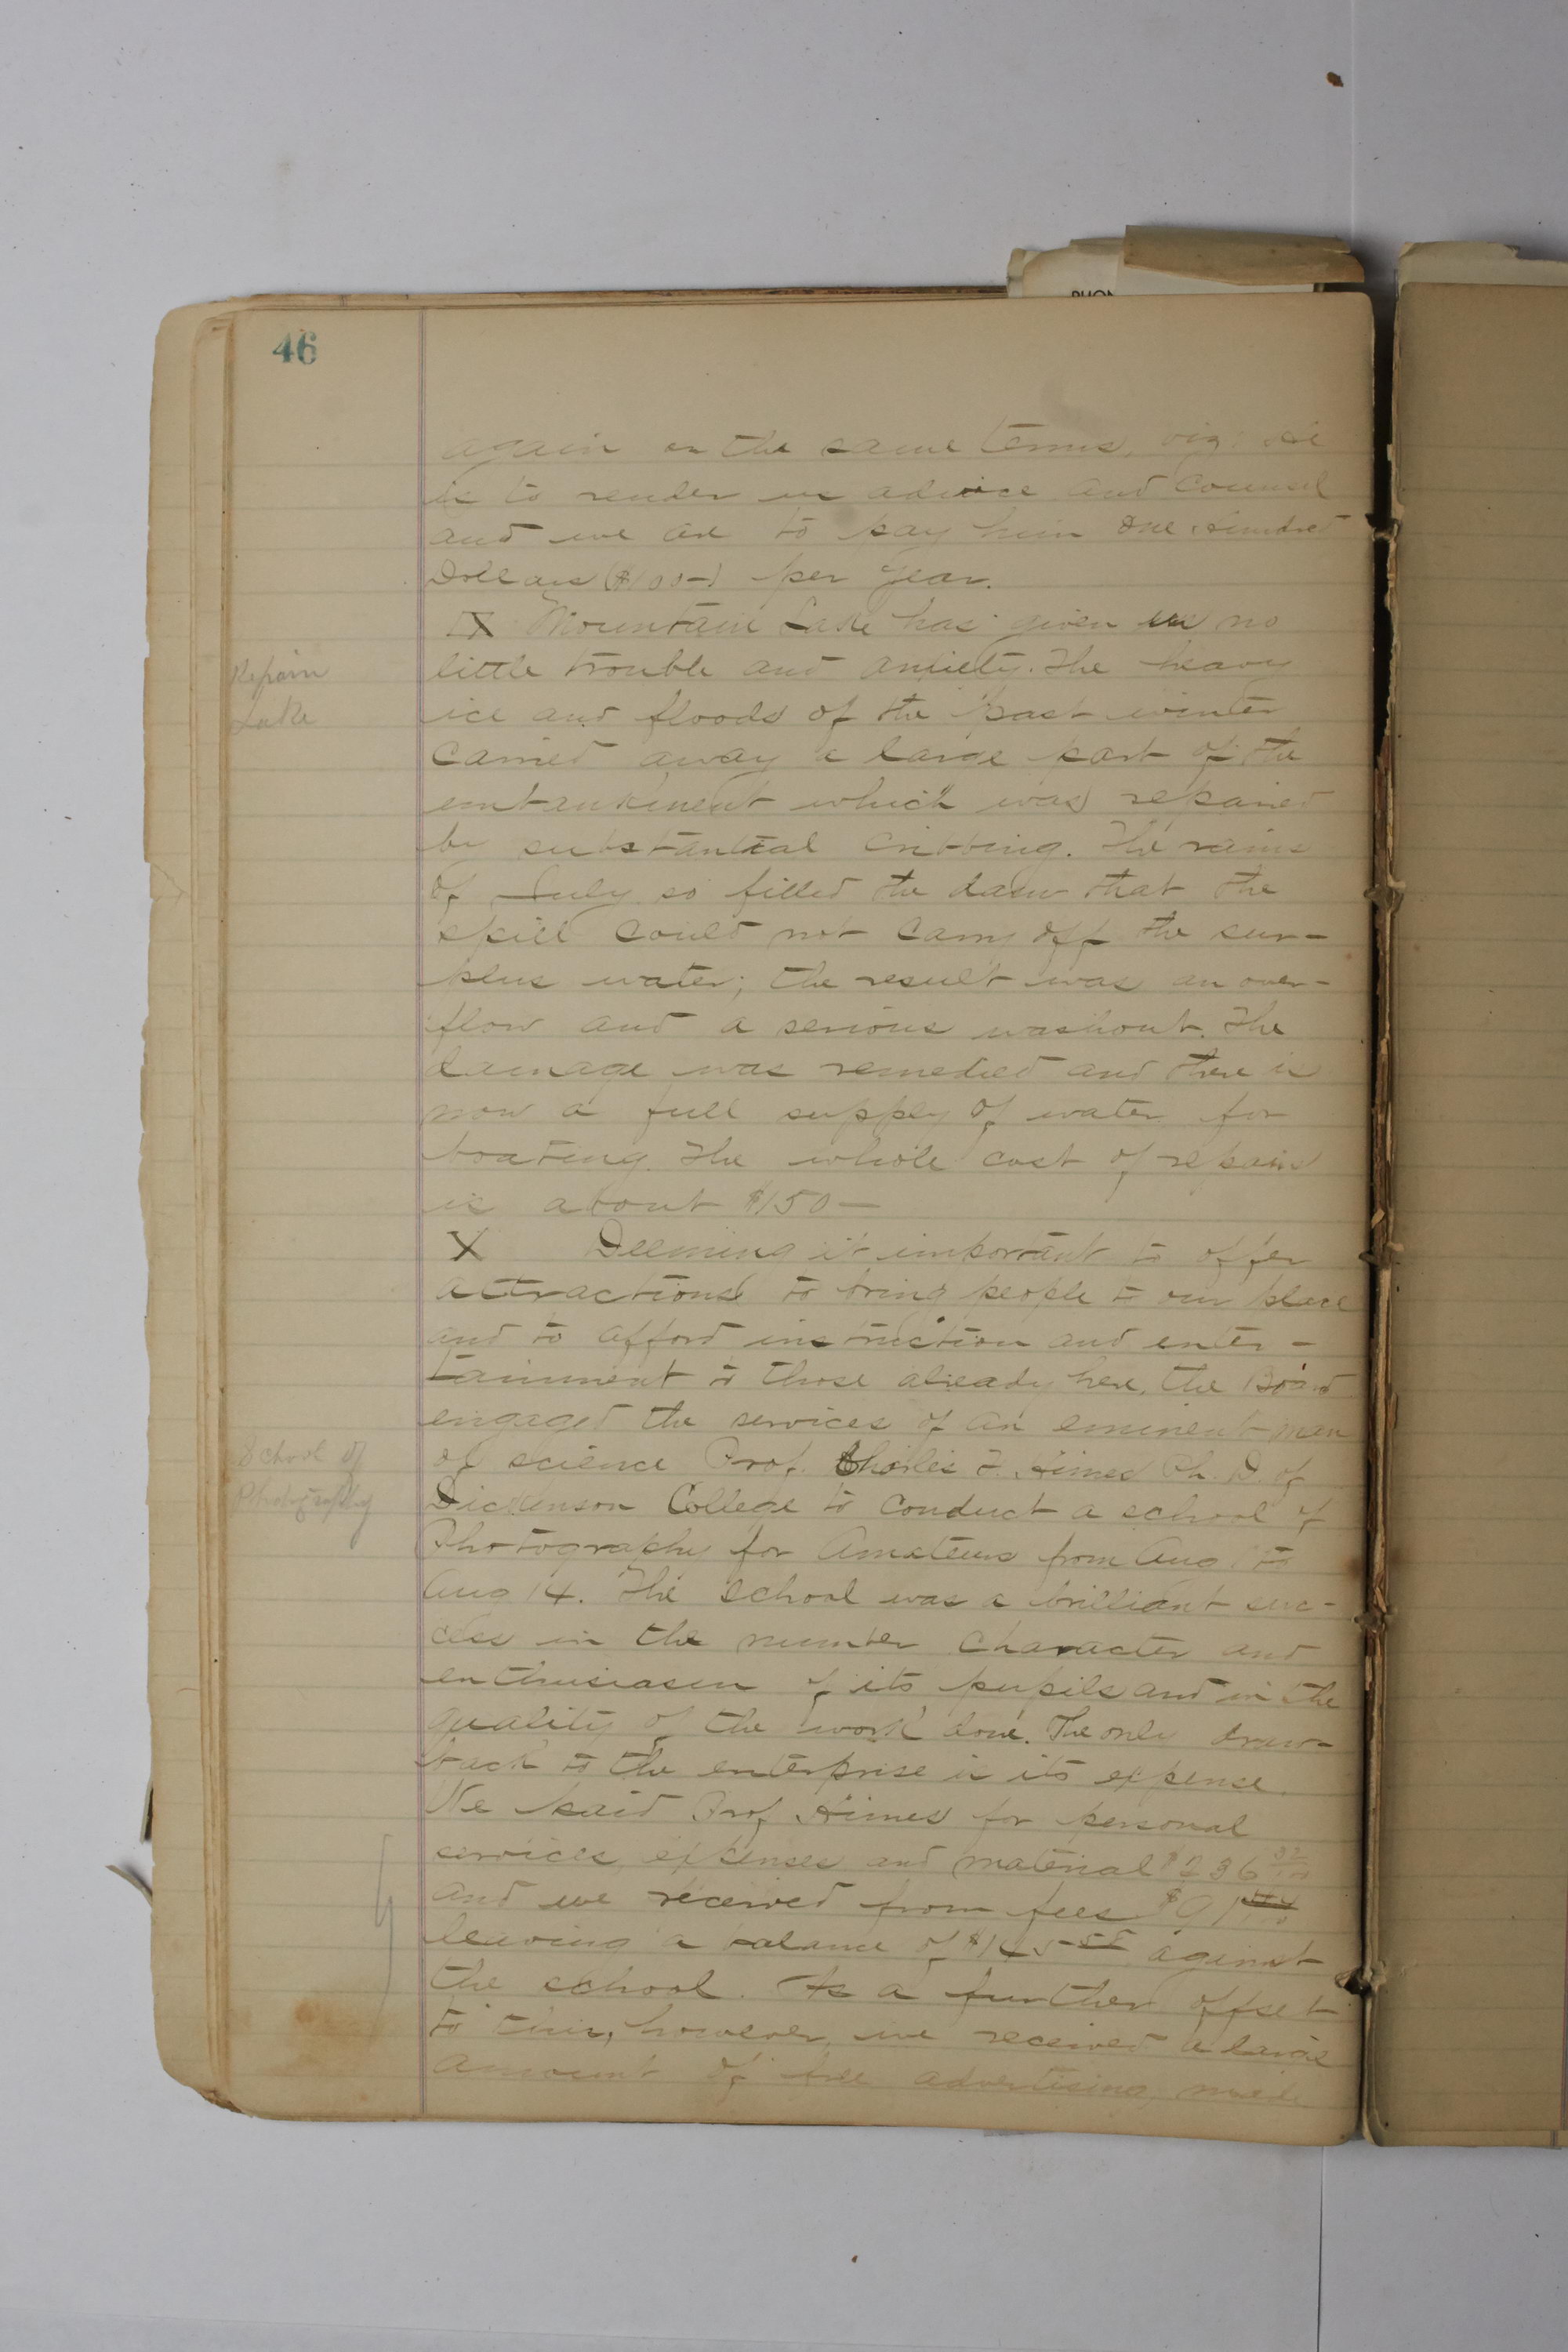 46
again on the same terms, viz: He
is to render us advice and Counsel
and we are to pay him One Hundred
Dollars ($100-) per year.
IX Mountain Lake has given us no
Repair
Lake
little trouble and anxiety. The heavy
ice and floods of the past winter
carried away a large part of the
embankment which was repaired
by substantial cribbing. The rains
of July so filled the dam that the
spill could not carry off the sur-
plus water; the result was an over-
flow and a serious washout. The
damage was remedied and there is
now a full supply of water for
boating. The whole cost of repairs
is about $150-
X Deeming it important to offer
attractions to bring people to our place
and to afford instruction and enter-
tainment to those already here, the Board
engaged the services of an eminent man
School of
Photography
of science Prof. Charles F. Himes Ph. D. of
Dickinson College to conduct a school of
Photography for Amateurs from Aug 1 to
Aug 14. The school was a brilliant suc-
cess in the number character and
enthusiasm of its pupils and in the
quality of the work done. The only draw-
back to the enterprise is its expense.
We paid Prof Himes for personal
services, expenses and material $236
and we received from fees
leaving a balance of $145 55 against
the school. As a further offset
to this, however, we received a large
amount of free advertising, made